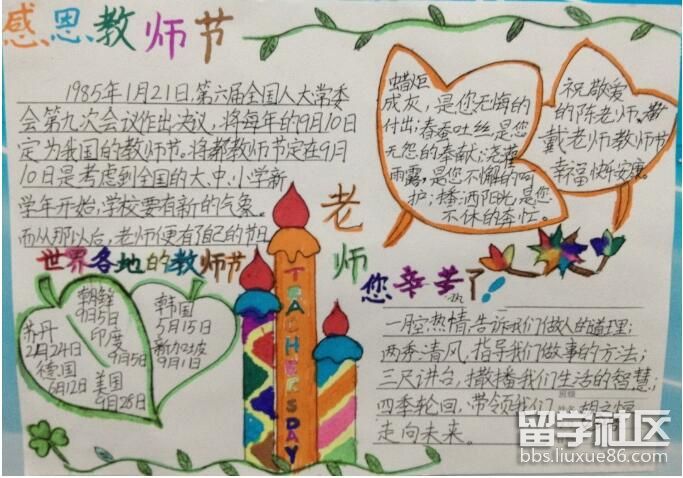 感恩教师节
1985年1月21日,第六届全国人大常委
会第九次会议作出决议,将每年的9月10日
定为我国的教师节。将都教师节定在9月
10日是考虑到全国的大、中、小学新
学年开始,学校要有新的气象。
而从那以后,老师便有了自己的节日
蜡炬
成灰,是您无悔的
付出;春蚕吐丝是您
无怨的奉献;浇灌
雨露,是您不懈的呵
护;播洒阳光,是您
不休的责任。
祝敬爱
的陈老师、
戴老师教师节
幸福快乐安康。
世界各地的教师节
朝鲜
9月5日
印度
9月5日
苏丹
2月24日
德国
6月12日
美国
9月28日
韩国
5月15日
新加坡
9月1日
TEACHERS DAY
老师
您辛苦了!
一月空热情,告诉我们做人的道理;
两季清风,指导我们做事的方法;
三尺讲台,撒播我们生活的智慧;
四季轮回,带领我们
走向未来。
班级
留学社区
bbs.liuxue86.com